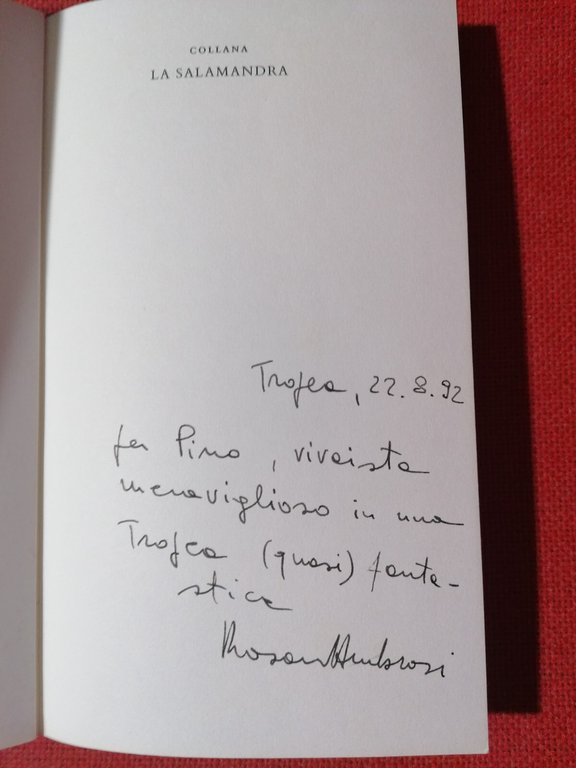 COLLANA
LA SALAMANDRA
Tropea, 22.8.92
per Pino, vivaista
meraviglioso in una
Tropea (quasi) fanta-
stica
Ambrosi